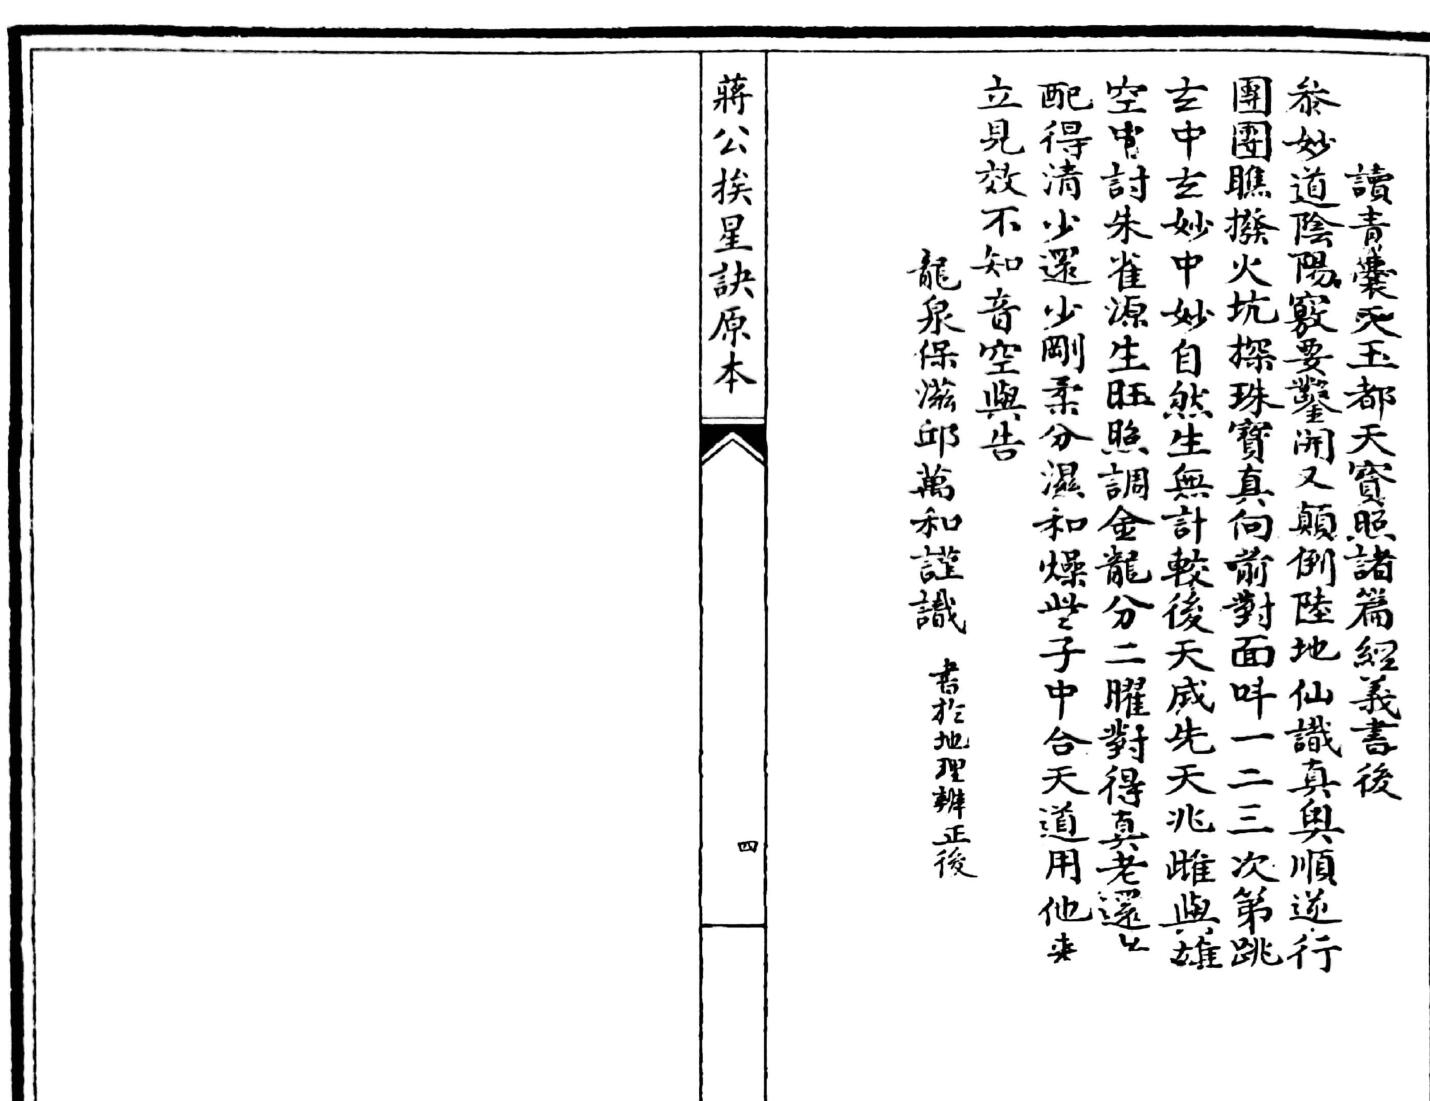 讀青囊天玉都天寶照諸篇經義書後
參妙道陰陽竅要鑿開又顛倒陸地仙識真奧順逆行
團團瞧撥火坑探珠寶真向前對面呌一二三次第跳
玄中玄妙中妙自然生無計較後天威先天兆雌與雄
空中討朱雀源生旺照調金龍分二曜對得真老還少
配得清少還少剛柔分濕和燥些子中合天道用他來
立見效不知音空與告
龍泉保滋邱萬和謹識 書於地理辨正後
蔣公挨星訣原本
四